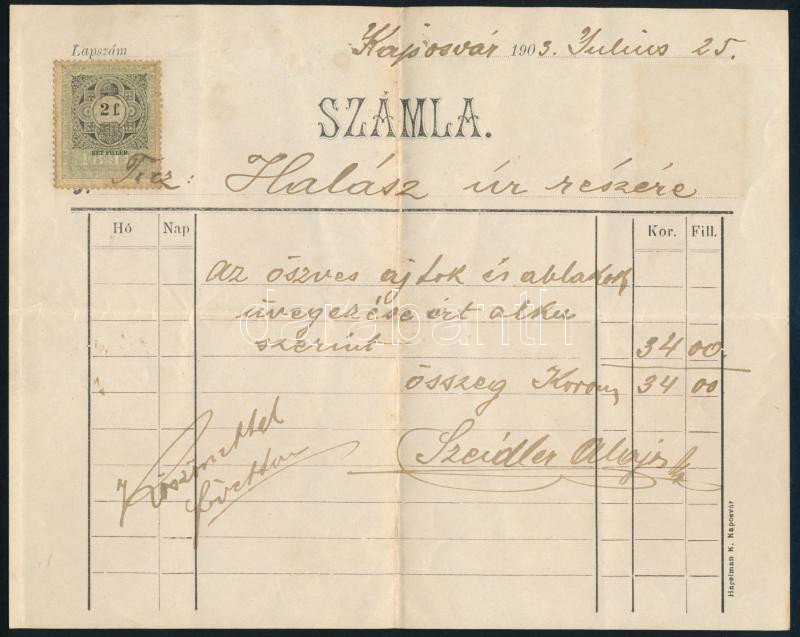 Lapszám
Kaposvár 1903. Julius 25.
2 f.
KÉT FILLÉR
SZÁMLA.
Halász úr részére
Hó Nap Kor. Fill.
az öszves ajtok és ablakok
üvegezése ért alku
szerint 34 00.
összeg Korona 34 00
Köszönettel
Szeidler Alajos
Hagelman K. Kaposvár
darabanth